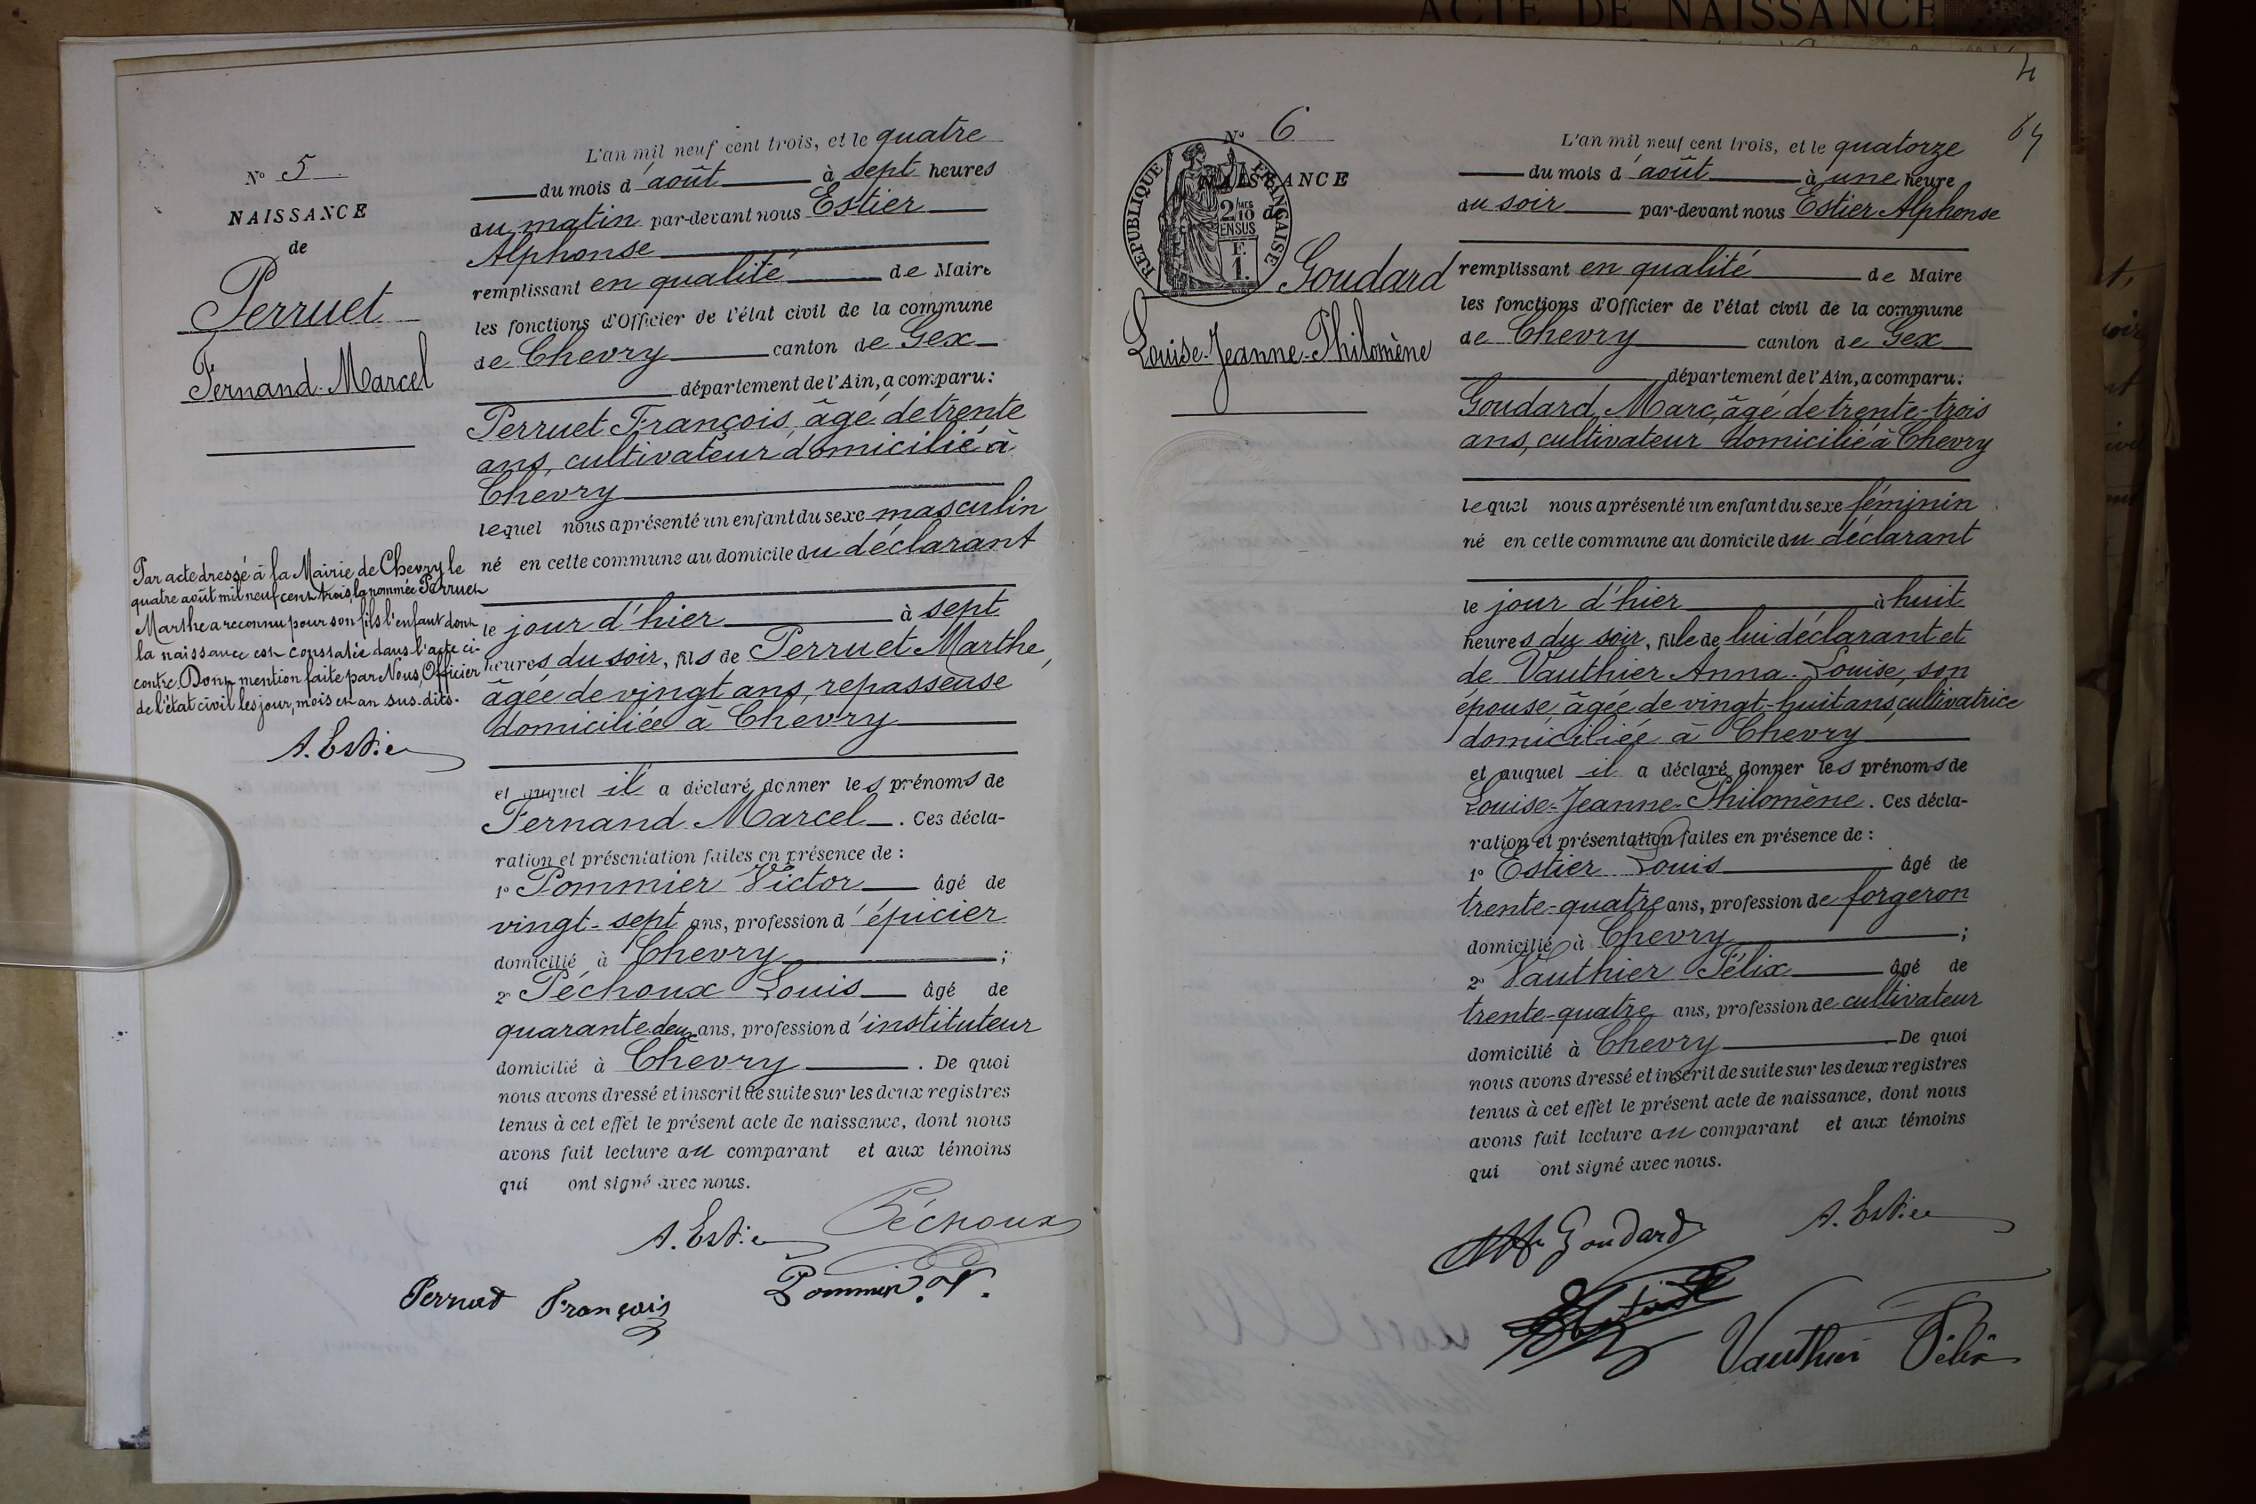 ACTE DE NAISSANCE
N° 5
NAISSANCE
de
Perruet
Fernand-Marcel
Par acte dressé à la Mairie de Chevry le
quatre août mil neuf cent trois, la nommée Perruet
Marthe a reconnu pour son fils l'enfant dont
la naissance est constatée dans l'acte ci-
contre. Dont mention faite par Nous, Officier
de l'état civil les jour, mois et an sus-dits.
A. Estier
L'an mil neuf cent trois, et le quatre
du mois d'août à sept heures
du matin par-devant nous Estier
Alphonse
remplissant en qualité de Maire
les fonctions d'Officier de l'état civil de la commune
de Chevry canton de Gex
département de l'Ain, a comparu:
Perruet François, âgé de trente
ans, cultivateur, domicilié à
Chevry
lequel nous a présenté un enfant du sexe masculin
né en cette commune au domicile du déclarant
le jour d'hier à sept
heures du soir, fils de Perruet Marthe,
âgée de vingt ans, repasseuse
domiciliée à Chevry
et auquel il a déclaré donner les prénoms de
Fernand-Marcel. Ces décla-
ration et présentation faites en présence de :
1° Pommier Victor âgé de
vingt-sept ans, profession d'épicier
domicilié à Chevry ;
2° Péchoux Louis âgé de
quarante-deux ans, profession d'instituteur
domicilié à Chevry. De quoi
nous avons dressé et inscrit de suite sur les deux registres
tenus à cet effet le présent acte de naissance, dont nous
avons fait lecture au comparant et aux témoins
qui ont signé avec nous.
A. Estier Péchoux
Perruet François Pommier. V.
4
N° 6
NAISSANCE
de
RÉPUBLIQUE FRANÇAISE
2/10
EN SUS
F.
1.
Goudard
Louise-Jeanne-Philomène
L'an mil neuf cent trois, et le quatorze
du mois d'août à une heure
du soir par-devant nous Estier Alphonse
remplissant en qualité de Maire
les fonctions d'Officier de l'état civil de la commune
de Chevry canton de Gex
département de l'Ain, a comparu:
Goudard Marc, âgé de trente-trois
ans, cultivateur domicilié à Chevry
lequel nous a présenté un enfant du sexe féminin
né en cette commune au domicile du déclarant
le jour d'hier à huit
heures du soir, fille de lui déclarant et
de Vauthier Anna-Louise, son
épouse, âgée de vingt-huit ans, cultivatrice
domiciliée à Chevry
et auquel il a déclaré donner les prénoms de
Louise-Jeanne-Philomène. Ces décla-
ration et présentation faites en présence de :
1° Estier Louis âgé de
trente-quatre ans, profession de forgeron
domicilié à Chevry ;
2° Vauthier Félix âgé de
trente-quatre ans, profession de cultivateur
domicilié à Chevry De quoi
nous avons dressé et inscrit de suite sur les deux registres
tenus à cet effet le présent acte de naissance, dont nous
avons fait lecture au comparant et aux témoins
qui ont signé avec nous.
Goudard A. Estier
Vauthier Félix